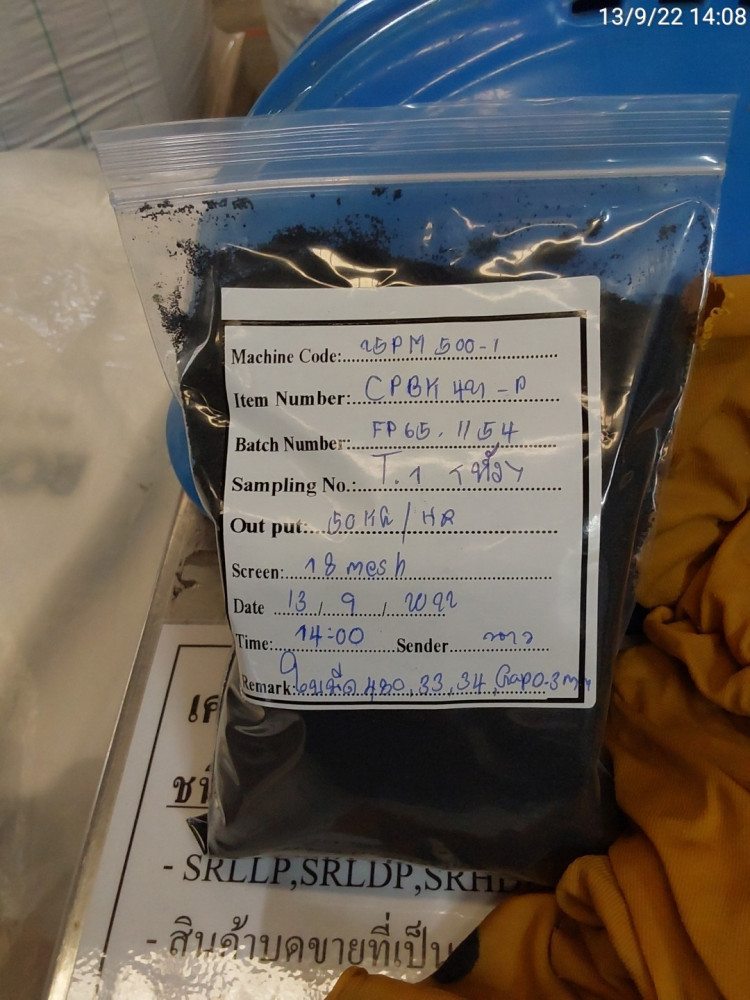 13/9/22 14:08
Machine Code: 25PM 500-1
Item Number: CPBK 421-P
Batch Number: FP65.1154
Sampling No.: T.1
Out put: 50 KG/HR
Screen: 18 mesh
Date 13 / 9 / 2022
Time: 14:00 Sender
Remark: ใบมีด 480, 33, 34, Gap 0.3 mm
- SRLLP,SRLDP,
- สินค้าบดขายที่เป็น